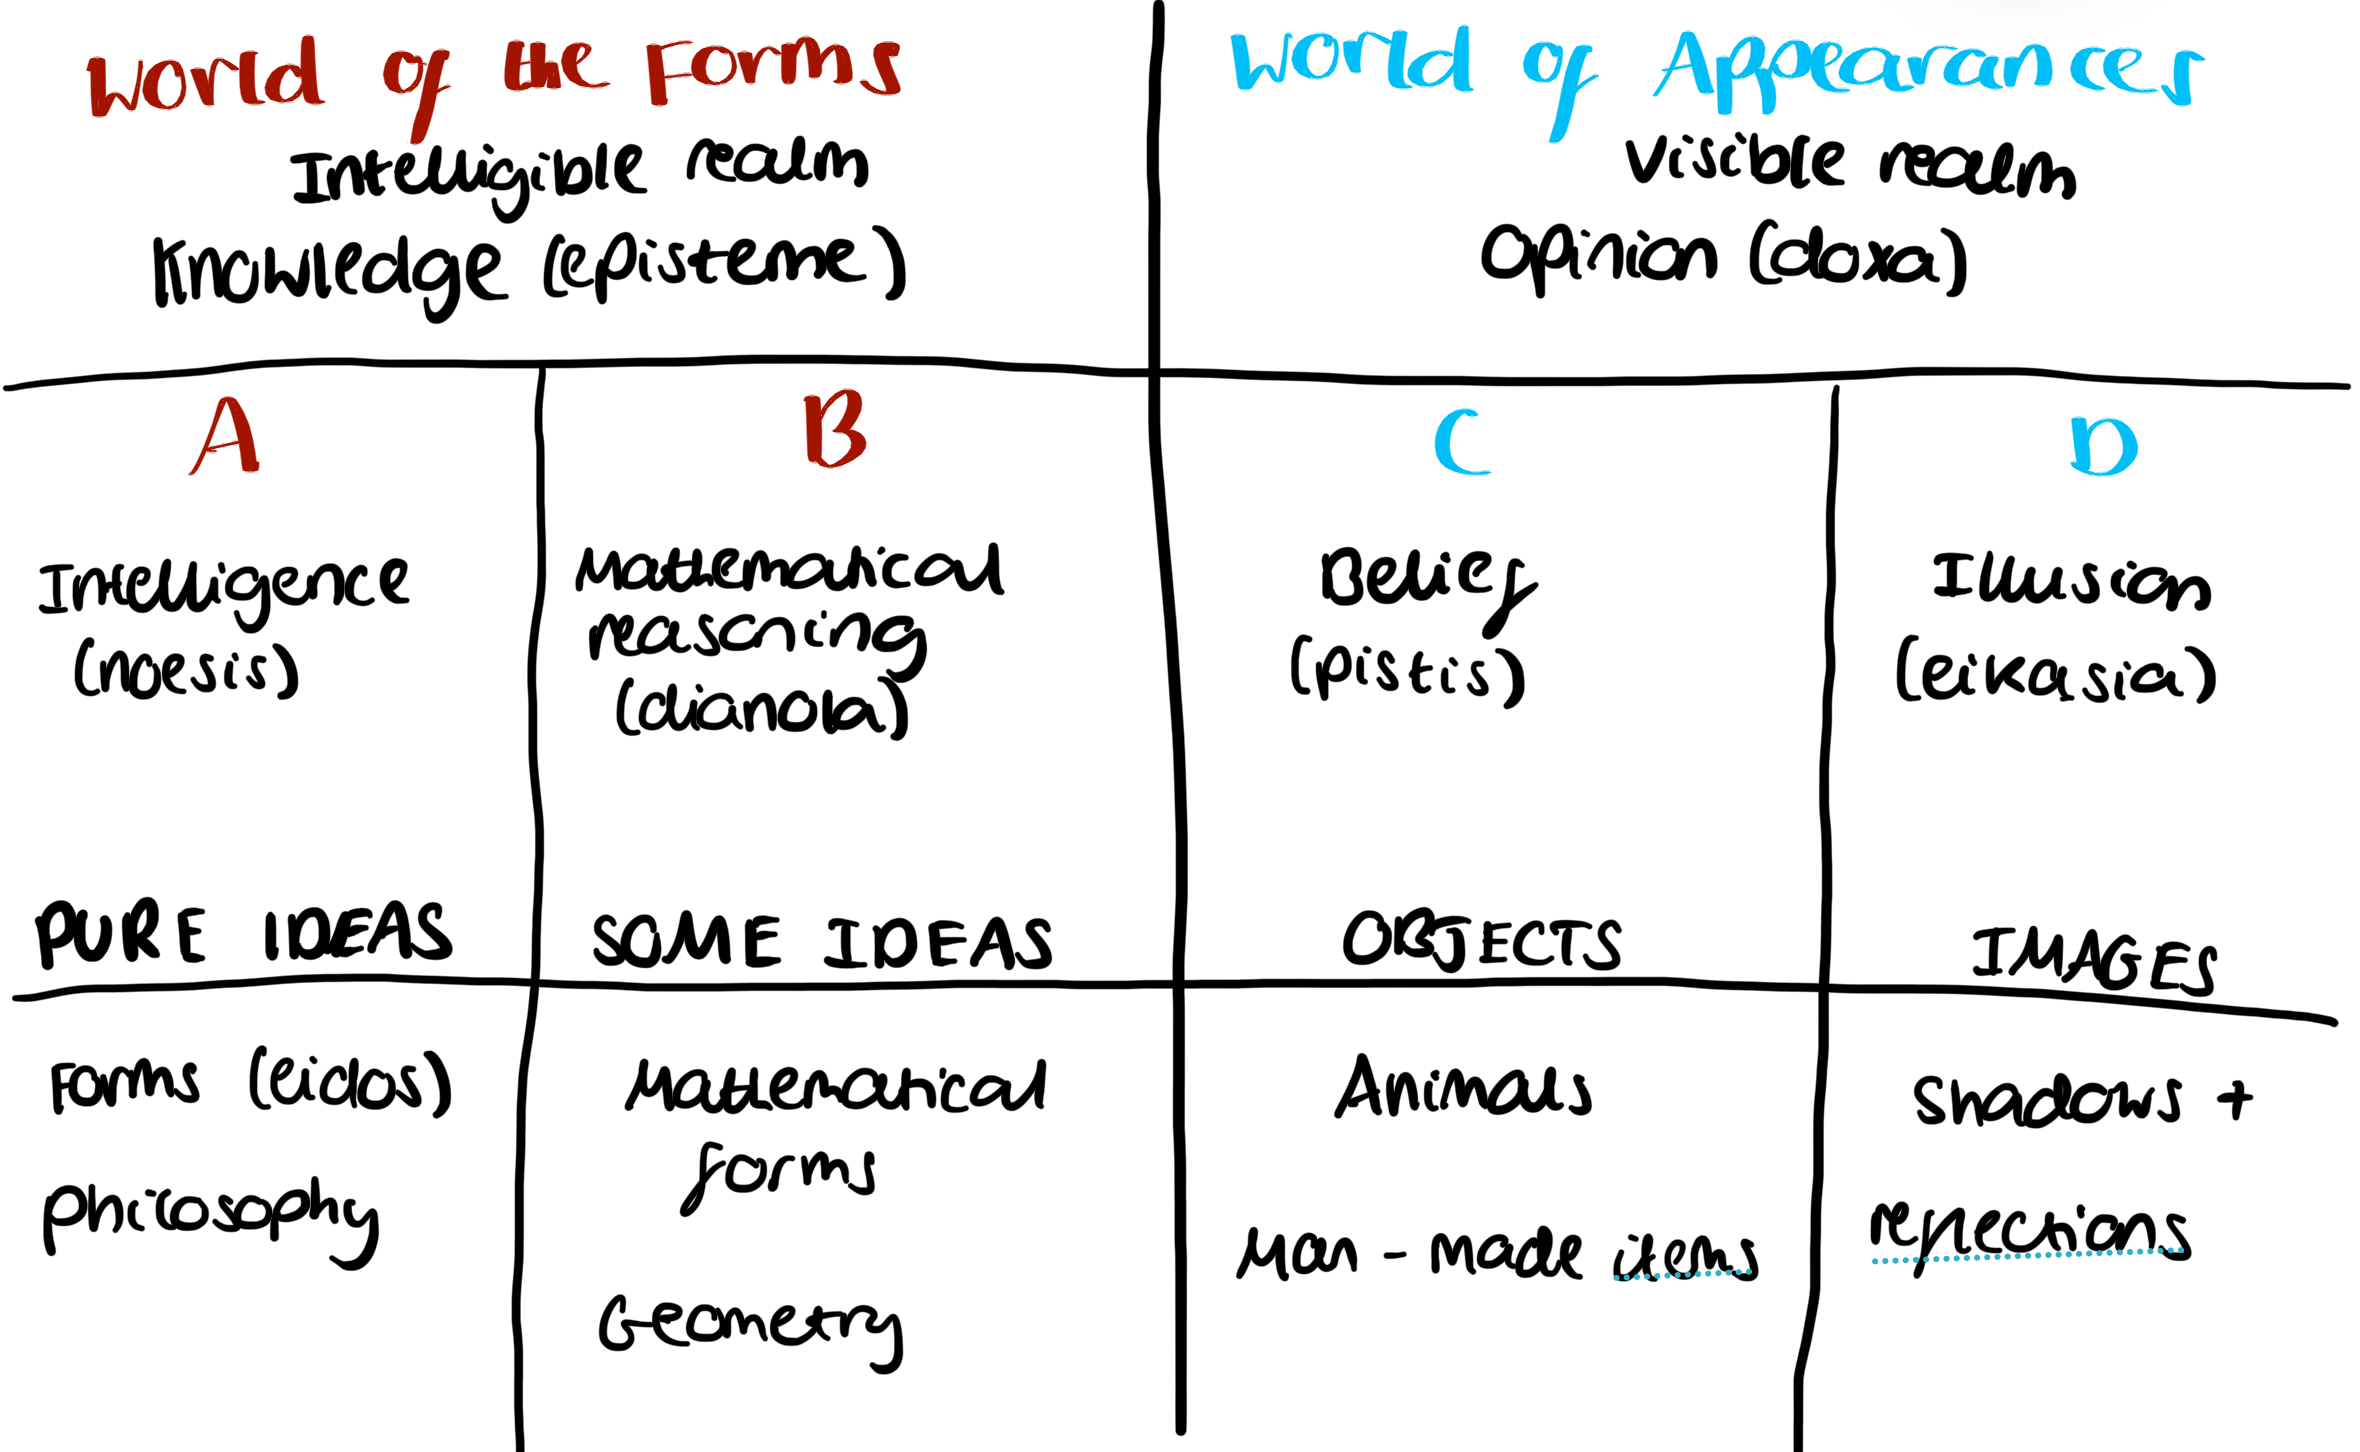 World of the Forms
Intelligible realm
Knowledge (episteme)
World of Appearances
Visible realm
Opinion (doxa)
A
Intelligence
(noesis)
PURE IDEAS
B
Mathematical
reasoning
(dianoia)
SOME IDEAS
C
Belief
(pistis)
OBJECTS
D
Illusion
(eikasia)
IMAGES
Forms (eidos)
Philosophy
Mathematical
forms
Geometry
Animals
Man-made items
Shadows +
reflections